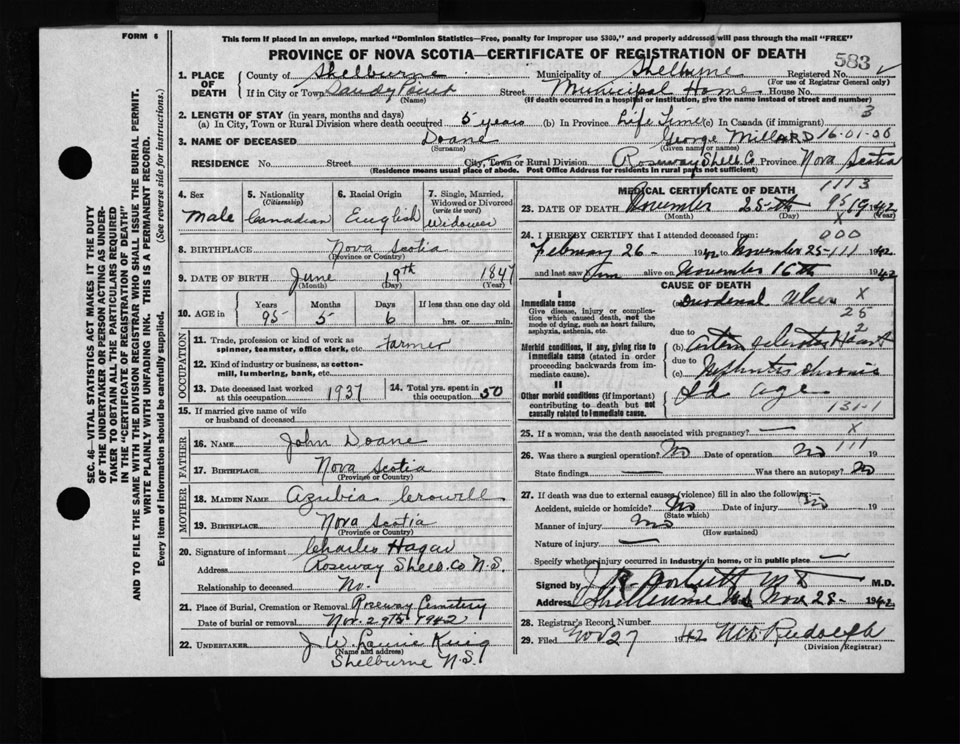 FORM 6
This form if placed in an envelope, marked "Dominion Statistics—Free, penalty for improper use $300," and properly addressed will pass through the mail "FREE"
PROVINCE OF NOVA SCOTIA—CERTIFICATE OF REGISTRATION OF DEATH
583
1. PLACE OF DEATH
County of Shelburne Municipality of Shelburne Registered No.
(For use of Registrar General only)
If in City or Town Sandy Point Street Municipal Home House No.
(Name) (If death occurred in a hospital or institution, give the name instead of street and number)
3
2. LENGTH OF STAY (in years, months and days)
(a) In City, Town or Rural Division where death occurred 5 years (b) In Province Life Time (c) In Canada (if immigrant)
3. NAME OF DECEASED Doane George Millard 16-01-00
(Surname) (Given name or names)
RESIDENCE No. Street City, Town or Rural Division Roseway Shelb. Co Province Nova Scotia
(Residence means usual place of abode. Post Office Address for residents in rural parts not sufficient)
4. Sex Male
5. Nationality (Citizenship) Canadian
6. Racial Origin English
7. Single, Married, Widowed or Divorced (write the word) Widower
8. BIRTHPLACE Nova Scotia
(Province or Country)
9. DATE OF BIRTH June 19th 1847
(Month) (Day) (Year)
10. AGE in Years 95 Months 5 Days 6 If less than one day old hrs. or min.
OCCUPATION
11. Trade, profession or kind of work as spinner, teamster, office clerk, etc. Farmer
12. Kind of industry or business, as cotton-mill, lumbering, bank, etc.
13. Date deceased last worked at this occupation 1937
14. Total yrs. spent in this occupation 50
15. If married give name of wife or husband of deceased
FATHER
16. NAME John Doane
17. BIRTHPLACE Nova Scotia
(Province or Country)
MOTHER
18. MAIDEN NAME Azubia Crowell
19. BIRTHPLACE Nova Scotia
(Province or Country)
20. Signature of informant Charles Hagar
Address Roseway Shelb. Co N.S.
Relationship to deceased No.
21. Place of Burial, Cremation or Removal Roseway Cemetery
Date of burial or removal Nov. 29th 1942
22. UNDERTAKER J. W. King
(Name and address)
Shelburne N.S.
MEDICAL CERTIFICATE OF DEATH
1113
23. DATE OF DEATH November 25th 1942
(Month) (Day) (Year)
95
X
24. I HEREBY CERTIFY that I attended deceased from:
000
February 26 - 1942 to November 25 - 1942
111
and last saw him alive on November 16th 1942
CAUSE OF DEATH
I
Immediate cause
Give disease, injury or complication which caused death, not the mode of dying, such as heart failure, asphyxia, asthenia, etc.
(a) Duodenal Ulcer X
25
2
due to
Morbid conditions, if any, giving rise to immediate cause (stated in order proceeding backwards from immediate cause).
(b) Heart
due to
(c) Nephritis chronic
II
Other morbid conditions (if important) contributing to death but not causally related to immediate cause.
Old age
131-1
25. If a woman, was the death associated with pregnancy? — X
26. Was there a surgical operation? No Date of operation no 111
State findings — Was there an autopsy? No
27. If death was due to external causes (violence) fill in also the following:
Accident, suicide or homicide? No Date of injury no 19
(State which)
Manner of injury no
(How sustained)
Nature of injury —
Specify whether injury occurred in industry, in home, or in public place —
Signed by M.D.
Address Shelburne Nov 28 - 1942
28. Registrar's Record Number
29. Filed Nov 27 1942 Rudolph
(Division Registrar)
SEC. 46—VITAL STATISTICS ACT MAKES IT THE DUTY
OF THE UNDERTAKER OR PERSON ACTING AS UNDER-
TAKER TO OBTAIN ALL THE PARTICULARS REQUIRED
IN THE "CERTIFICATE OF REGISTRATION OF DEATH"
AND TO FILE THE SAME WITH THE DIVISION REGISTRAR WHO SHALL ISSUE THE BURIAL PERMIT.
WRITE PLAINLY WITH UNFADING INK. THIS IS A PERMANENT RECORD.
Every item of information should be carefully supplied. (See reverse side for instructions.)